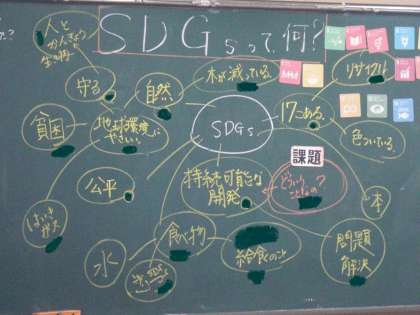 SDGsって、何?
人と
かんきょう
生き物
守る
自然
木が減っている
リサイクル
貧困
地球環境に
やさしい
SDGs
17こある
色ついている
公平
持続可能な
開発
課題
どういう
こと?
本
はいき
ガス
水
食べ物
給食のこと
問題
解決